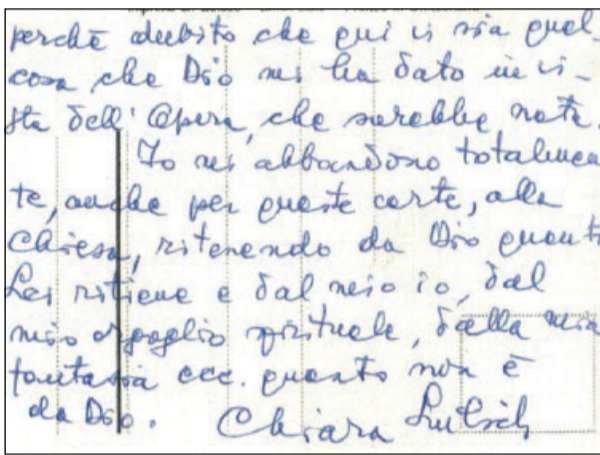 perchè dubito che qui vi sia qual-
cosa che Dio mi ha dato in vi-
sta dell' Opera, che sarebbe nata.
Io mi abbandono totalmen
te, anche per queste carte, alla
Chiesa, ritenendo da Dio quanto
Lei ritiene e dal mio io, dal
mio orgoglio spirituale, dalla mia
fantasia ecc. quanto non è
da Dio. Chiara Lubich